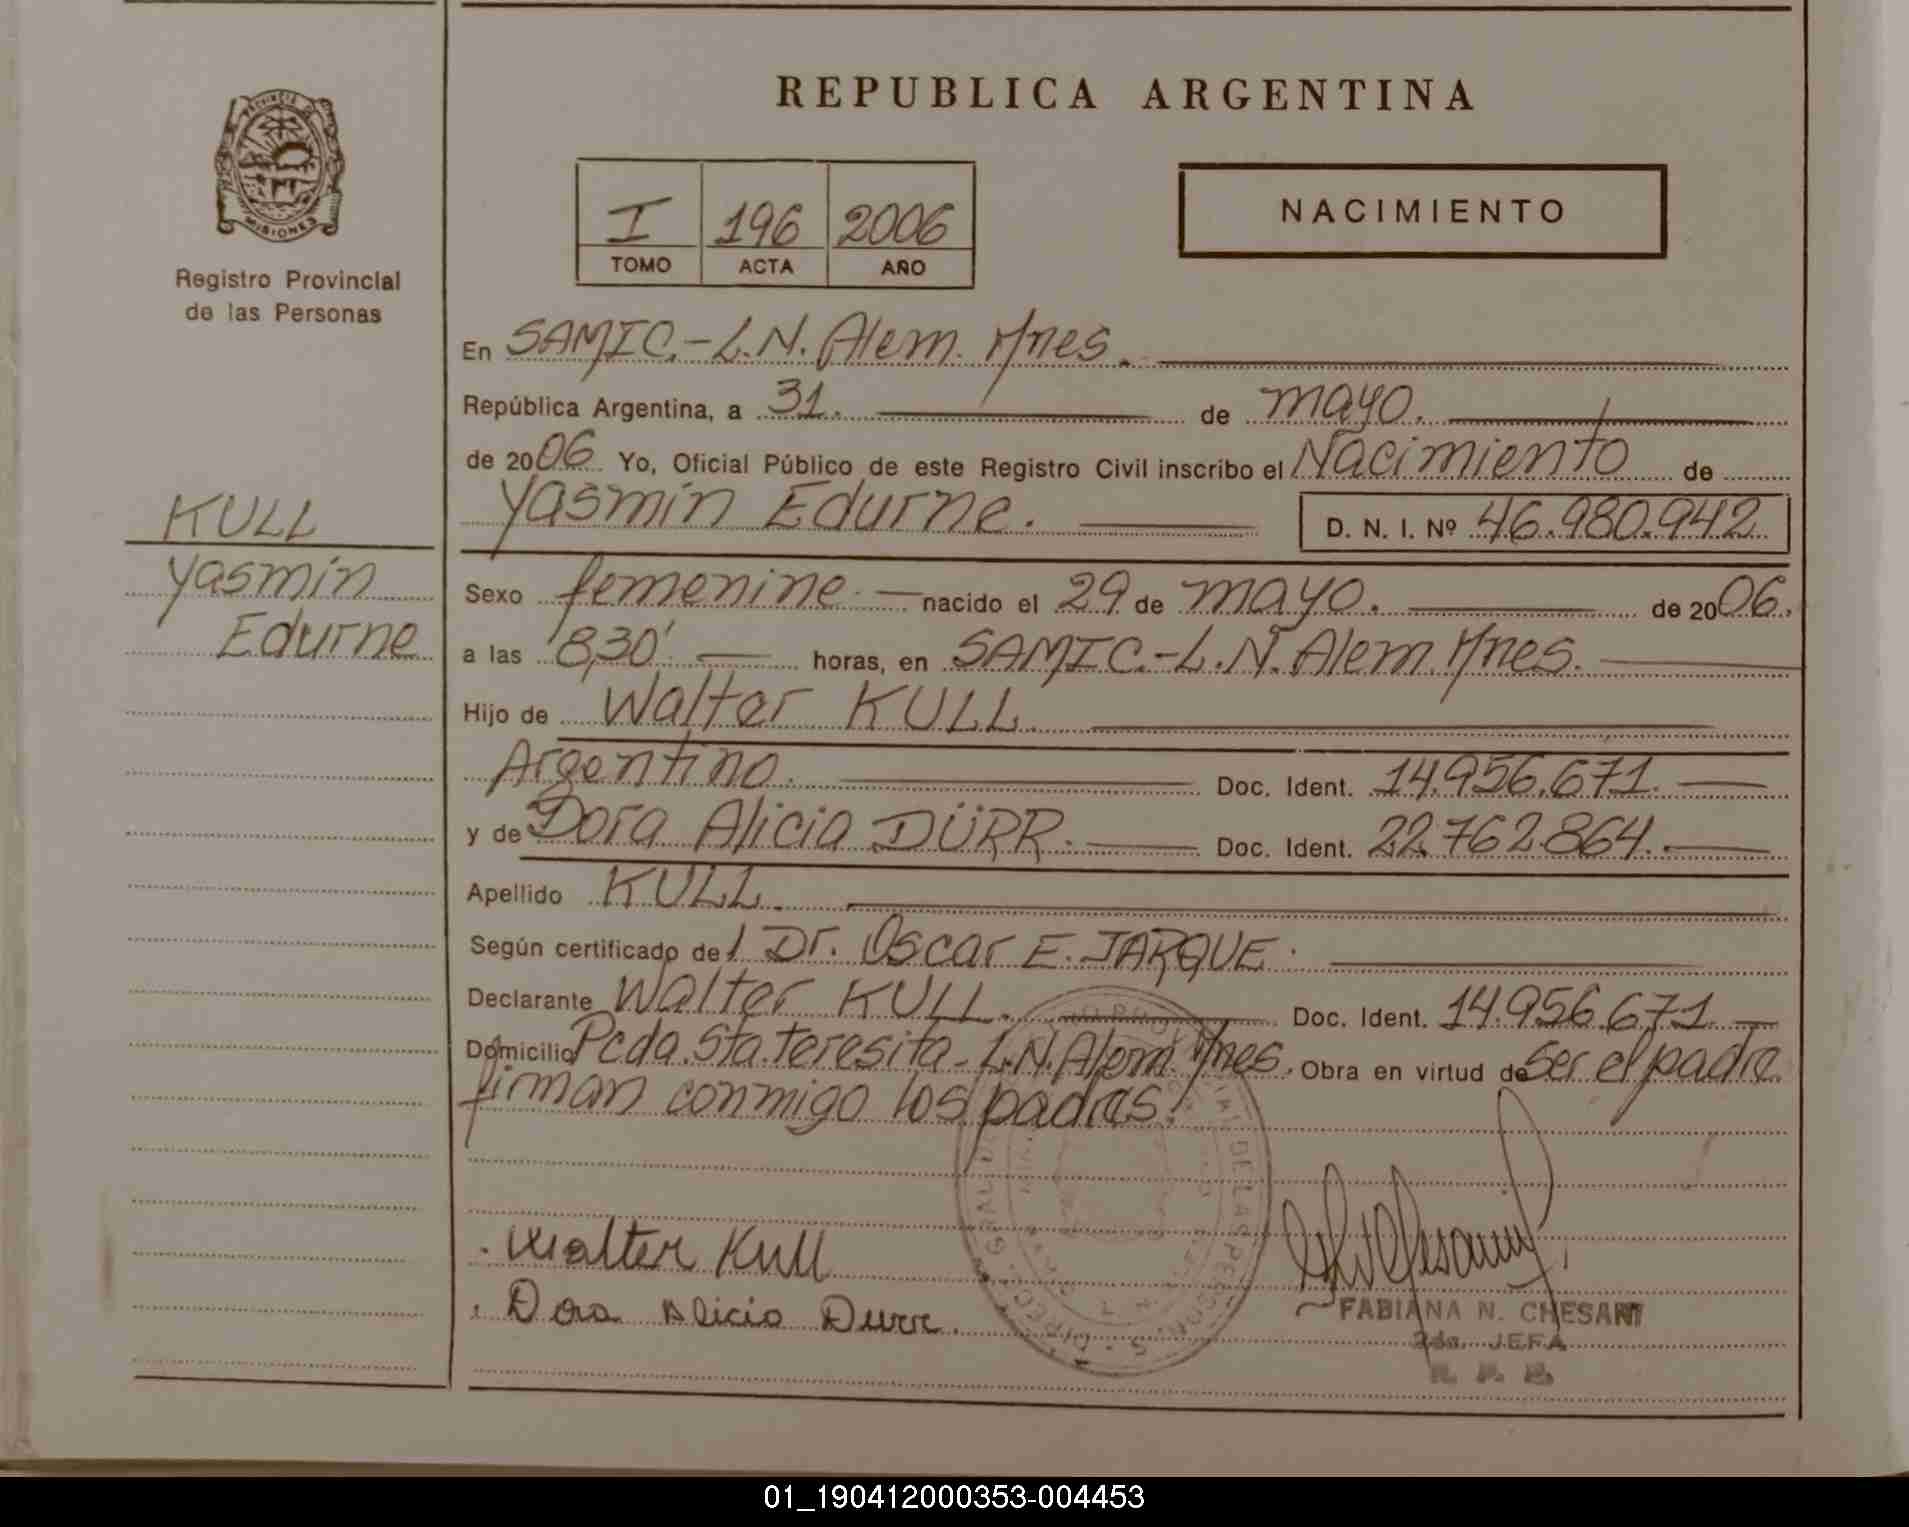 REPUBLICA ARGENTINA
PROVINCIA DE
MISIONES
Registro Provincial
de las Personas
I 196 2006
TOMO ACTA AÑO
NACIMIENTO
En SAMIC.-L.N. Alem. Mnes.
República Argentina, a 31. de mayo.
de 2006 Yo, Oficial Público de este Registro Civil inscribo el Nacimiento de
Yasmín Edurne. D. N. I. Nº 46.980.942
KULL
Yasmín
Edurne
Sexo femenino. nacido el 29 de mayo. de 2006.
a las 8,30' horas, en SAMIC.-L.N. Alem. Mnes.
Hijo de Walter KULL.
Argentino. Doc. Ident. 14.956.671.
y de Dora Alicia DÜRR. Doc. Ident. 22.762.864.
Apellido KULL.
Según certificado del Dr. Oscar E. JARQUE.
Declarante Walter KULL. Doc. Ident. 14.956.671.
Domicilio Pcda. Sta. Teresita - L.N. Alem. Mnes. Obra en virtud de ser el padre
firman conmigo los padres.
Walter Kull
Dora Alicia Durr.
FABIANA N. CHESANI
2da. JEFA
01_190412000353-004453